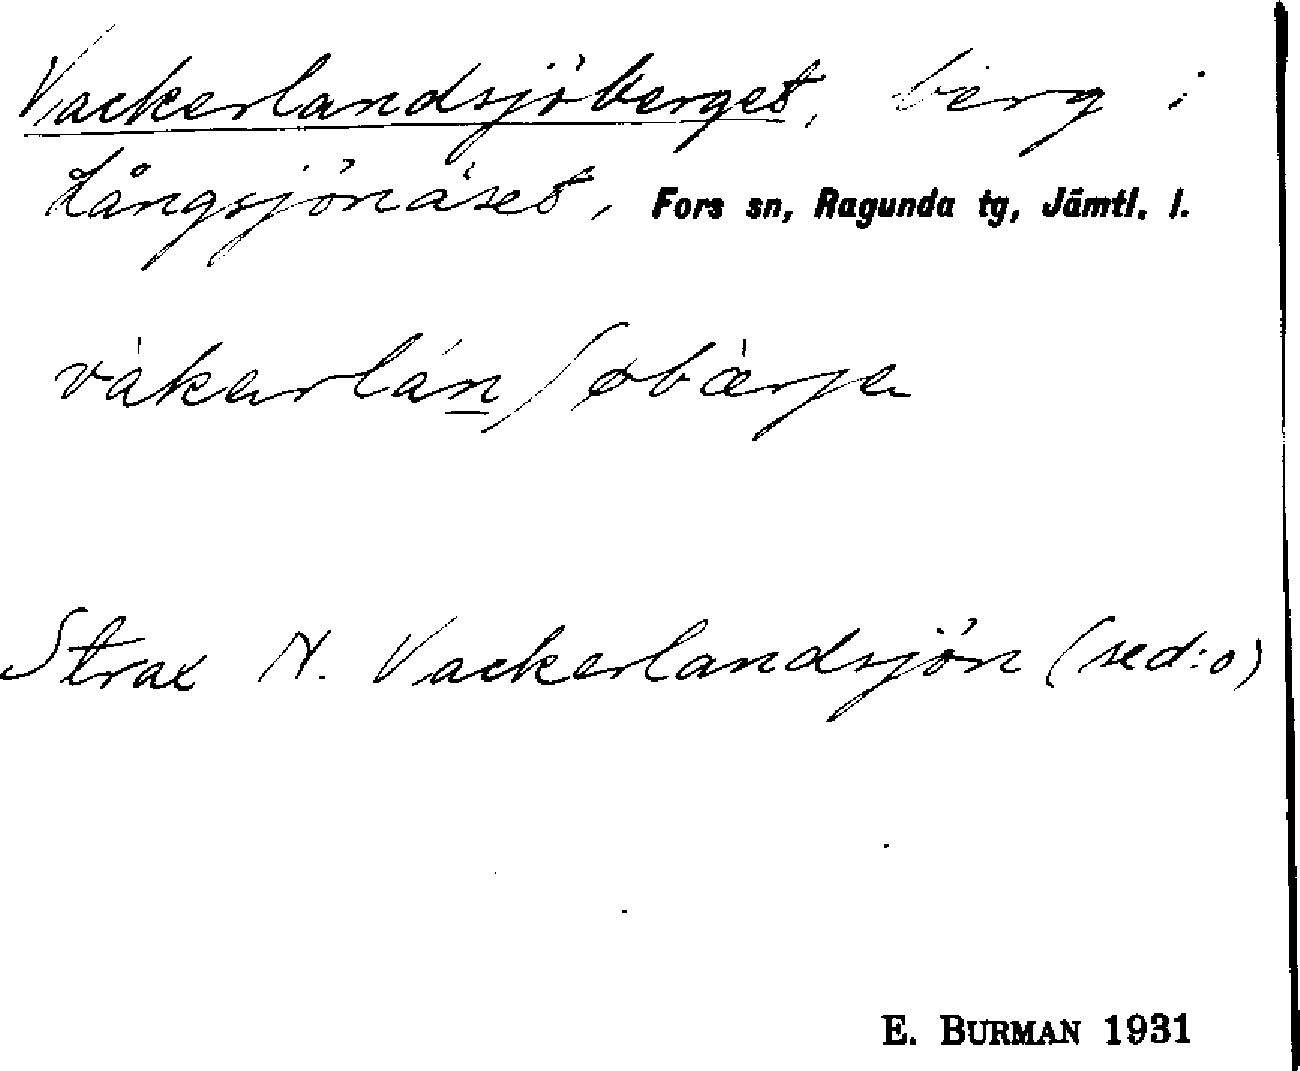 Vackerlandsjöberget, berg i
Långsjönäset, Fors sn, Ragunda tg, Jämtl. l.
vàkarlán̲ʃøbàrja
Strax N. Vackerlandsjön (sed:o)
E. BURMAN 1931